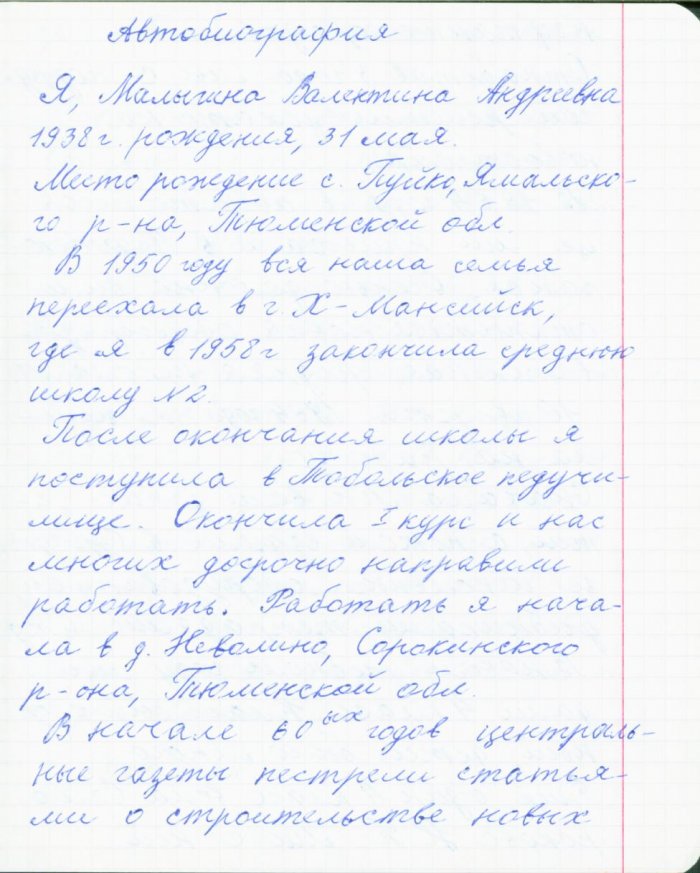 Автобиография
Я, Малыгина Валентина Андреевна
1938 г. рождения, 31 мая.
Место рождение с. Пуйко, Ямальско-
го р-на, Тюменской обл.
В 1950 году вся наша семья
переехала в г. Х-Мансийск,
где я в 1958 г закончила среднюю
школу №2.
После окончания школы я
поступила в Тобольское педучи-
лище. Окончила I курс и нас
многих досрочно направили
работать. Работать я нача-
ла в д. Неволино, Сорокинского
р-она, Тюменской обл.
В начале 60ых годов централь-
ные газеты пестрели статья-
ми о строительстве новых